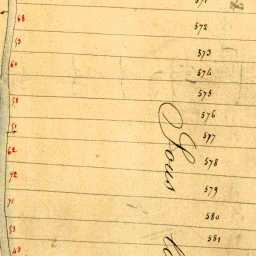 571
68
572
59
573
60
574
575
58
576
51
577
62
578
72
579
71
580
53
581
48
Sous